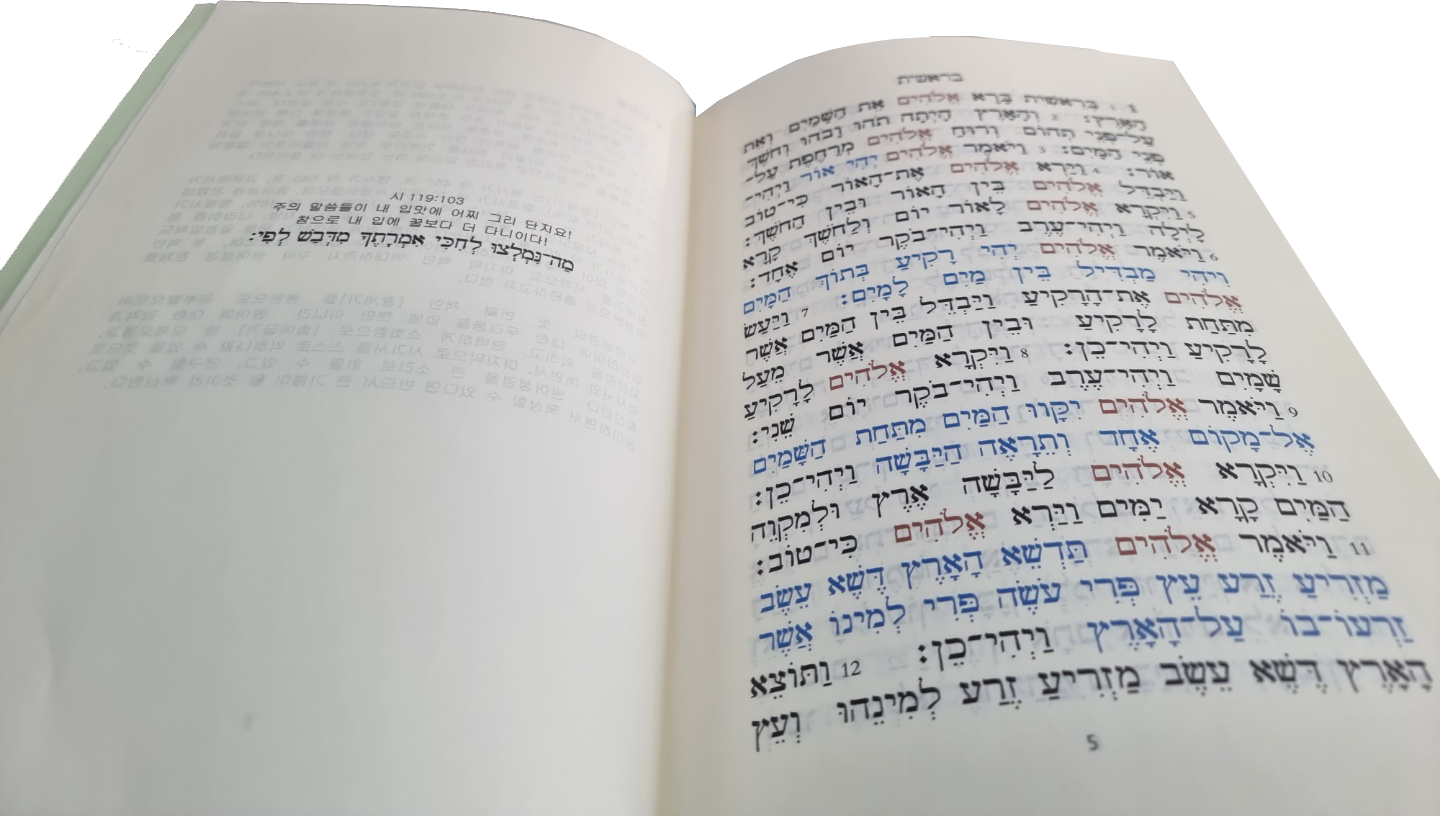 시 119:103
주의 말씀들이 내 입맛에 어찌 그리 단지요!
참으로 내 입에 꿀보다 더 다니이다!
מַה־נִּמְלְצוּ לְחִכִּי אִמְרָתֶךָ מִדְּבַשׁ לְפִי׃
בראשית
1 1 בְּרֵאשִׁית בָּרָא אֱלֹהִים אֵת הַשָּׁמַיִם וְאֵת
הָאָרֶץ׃ 2 וְהָאָרֶץ הָיְתָה תֹהוּ וָבֹהוּ וְחֹשֶׁךְ
עַל־פְּנֵי תְהוֹם וְרוּחַ אֱלֹהִים מְרַחֶפֶת עַל־
פְּנֵי הַמָּיִם׃ 3 וַיֹּאמֶר אֱלֹהִים יְהִי אוֹר וַיְהִי־
אוֹר׃ 4 וַיַּרְא אֱלֹהִים אֶת־הָאוֹר כִּי־טוֹב
וַיַּבְדֵּל אֱלֹהִים בֵּין הָאוֹר וּבֵין הַחֹשֶׁךְ׃
5 וַיִּקְרָא אֱלֹהִים לָאוֹר יוֹם וְלַחֹשֶׁךְ קָרָא
לָיְלָה וַיְהִי־עֶרֶב וַיְהִי־בֹקֶר יוֹם אֶחָד׃
6 וַיֹּאמֶר אֱלֹהִים יְהִי רָקִיעַ בְּתוֹךְ הַמָּיִם
וִיהִי מַבְדִּיל בֵּין מַיִם לָמָיִם׃ 7 וַיַּעַשׂ
אֱלֹהִים אֶת־הָרָקִיעַ וַיַּבְדֵּל בֵּין הַמַּיִם אֲשֶׁר
מִתַּחַת לָרָקִיעַ וּבֵין הַמַּיִם אֲשֶׁר מֵעַל
לָרָקִיעַ וַיְהִי־כֵן׃ 8 וַיִּקְרָא אֱלֹהִים לָרָקִיעַ
שָׁמָיִם וַיְהִי־עֶרֶב וַיְהִי־בֹקֶר יוֹם שֵׁנִי׃
9 וַיֹּאמֶר אֱלֹהִים יִקָּווּ הַמַּיִם מִתַּחַת הַשָּׁמַיִם
אֶל־מָקוֹם אֶחָד וְתֵרָאֶה הַיַּבָּשָׁה וַיְהִי־כֵן׃
10 וַיִּקְרָא אֱלֹהִים לַיַּבָּשָׁה אֶרֶץ וּלְמִקְוֵה
הַמַּיִם קָרָא יַמִּים וַיַּרְא אֱלֹהִים כִּי־טוֹב׃
11 וַיֹּאמֶר אֱלֹהִים תַּדְשֵׁא הָאָרֶץ דֶּשֶׁא עֵשֶׂב
מַזְרִיעַ זֶרַע עֵץ פְּרִי עֹשֶׂה פְּרִי לְמִינוֹ אֲשֶׁר
זַרְעוֹ־בוֹ עַל־הָאָרֶץ וַיְהִי־כֵן׃ 12 וַתּוֹצֵא
הָאָרֶץ דֶּשֶׁא עֵשֶׂב מַזְרִיעַ זֶרַע לְמִינֵהוּ וְעֵץ
5